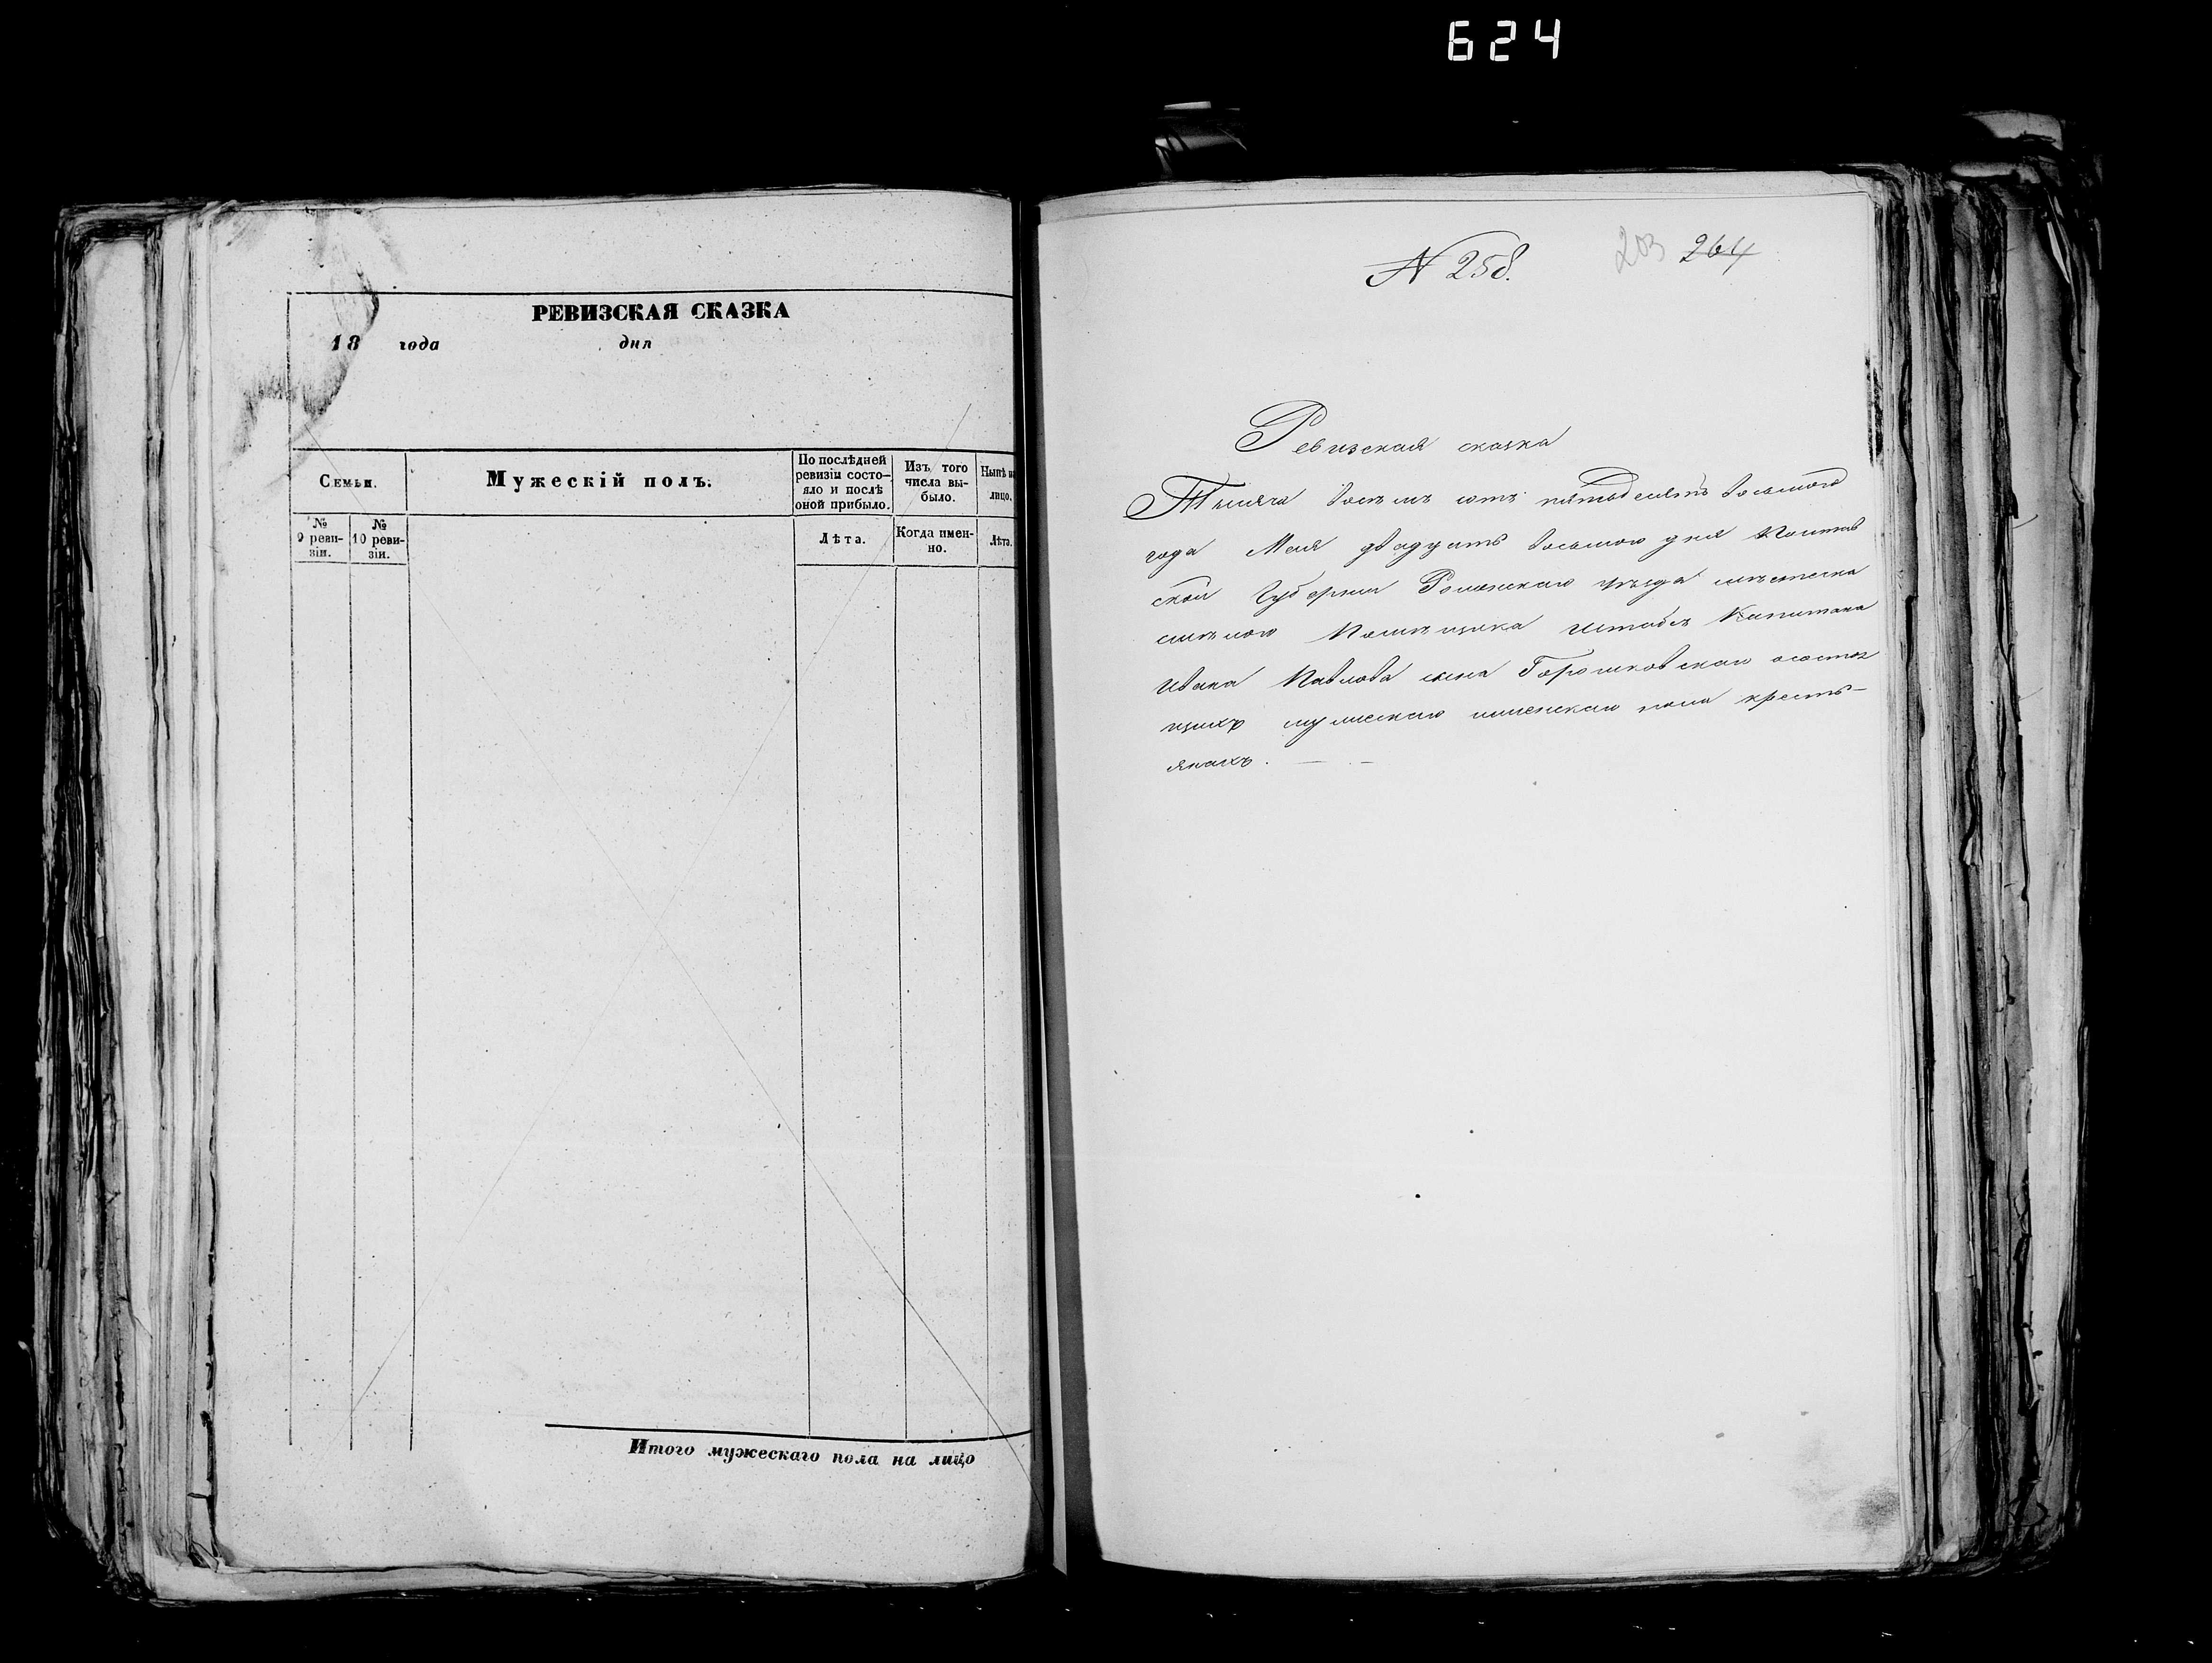 624
РЕВИЗСКАЯ СКАЗКА
18 года дня
Семьи.
Мужескій полъ.
По послѣдней ревизіи состо-
яло и послѣ
оной прибыло.
Изъ того
числа вы-
было.
Нынѣ на
лицо.
№
9 реви-
зіи.
№
10 реви-
зіи.
Лѣта.
Когда имен-
но.
Лѣта.
Итого мужескаго пола на лицо
N 258.
203 264
Ревизская сказка
Тысяча восемъ сотъ пятьдесятъ восьмого
года Мая двадцать восьмого дня Полтав
ской Губерніи Роменскаго уѣзда мѣстечка
смѣлого Помѣщика Штабсъ Капитана
Ивана Павлова сына Горошковскаго осостоя
щихъ мужескаго иженскаго пола кресть-
янахъ.